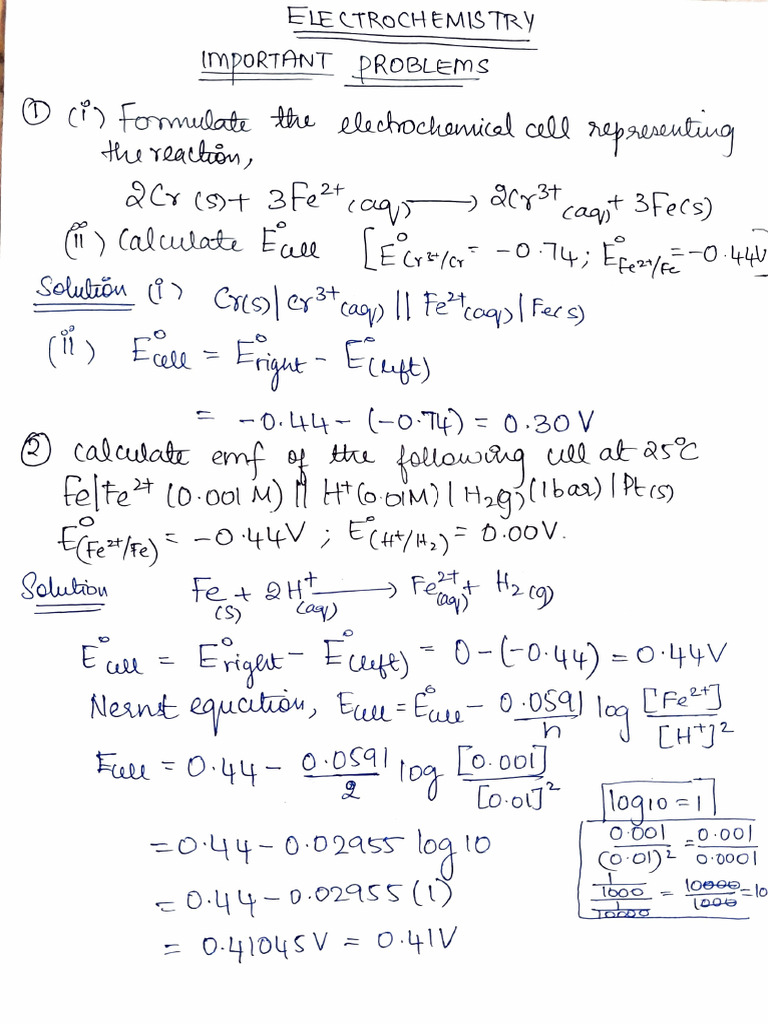 ELECTROCHEMISTRY
IMPORTANT PROBLEMS
① (i) Formulate the electrochemical cell representing
the reaction,
2Cr (s) + 3Fe²⁺ (aq) ⟶ 2Cr³⁺ (aq) + 3Fe(s)
(ii) Calculate E°cell [E°Cr³⁺/Cr = -0.74; E°Fe²⁺/Fe = -0.44V]
Solution (i) Cr(s)|Cr³⁺(aq)||Fe²⁺(aq)|Fe(s)
(ii) E°cell = E°right - E°(left)
= -0.44 - (-0.74) = 0.30 V
② Calculate emf of the following cell at 25°C
Fe|Fe²⁺ (0.001 M) || H⁺(0.01M) | H₂(g) (1bar) | Pt(s)
E°(Fe²⁺/Fe) = -0.44V ; E°(H⁺/H₂) = 0.00V.
Solution Fe(s) + 2H⁺(aq) ⟶ Fe²⁺(aq) + H₂(g)
E°cell = E°right - E°(left) = 0-(-0.44) = 0.44V
Nernst equation, Ecell = E°cell - 0.0591/n log [Fe²⁺]/[H⁺]²
Ecell = 0.44 - 0.0591/2 log [0.001]/[0.01]²
log10 = 1
0.001/(0.01)² = 0.001/0.0001
1/1000 / 1/10000 = 10000/1000 = 10
= 0.44 - 0.02955 log 10
= 0.44 - 0.02955 (1)
= 0.41045V = 0.41V